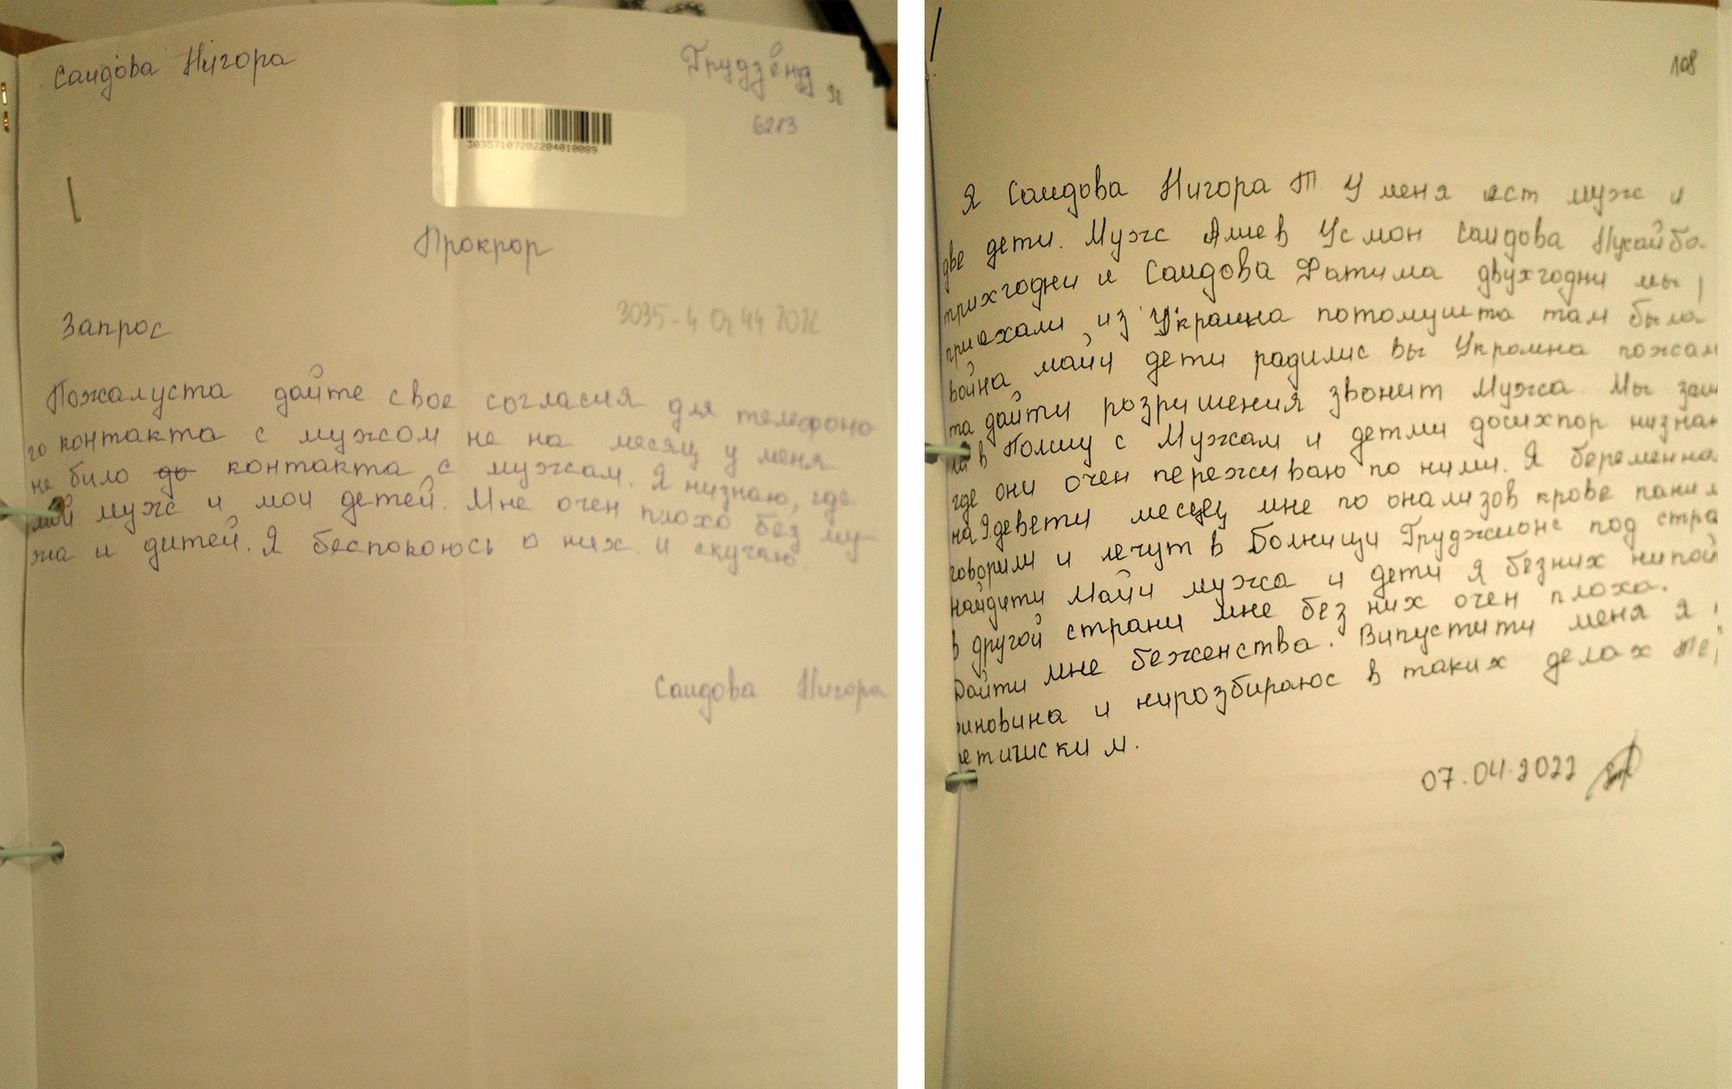 Саидова Нигора
Грудзёнд
6213
30357107202204010009
Прокрор
Запрос
3035-4
Пожалуста дайте свое согласия для телефоно
го контакта с мужом не на месяц у меня
не било до контакта с мужам. Я низнаю, где
мой муж и мои детей. Мне очен плохо без му-
жа и дитей. Я беспокоюсь о них и скучаю.
Саидова Нигора
108
Я Саидова Нигора Т У меня ест муж и
две дети. Муж Алиев Усмон Саидова
трихгодни и Саидова Фатима двухгодни мы
приехали из Украина потомушта там была
война майи дети радилис вы Украина пожал
та дайти розришения звонит Мужа. Мы
в Полшу с Мужам и детми досихпор низна
где они очен переживаю по ними. Я беременна
на 9девети месяц мне по онализов крове
говорили и лечут в Болници под стра
найдити майи мужа и дети я безних
в другой страни мне без них очен плоха.
Дайти мне беженства. Випустити меня я
виновина и нирозбираюс в таких делах
етишским.
07.04.2022